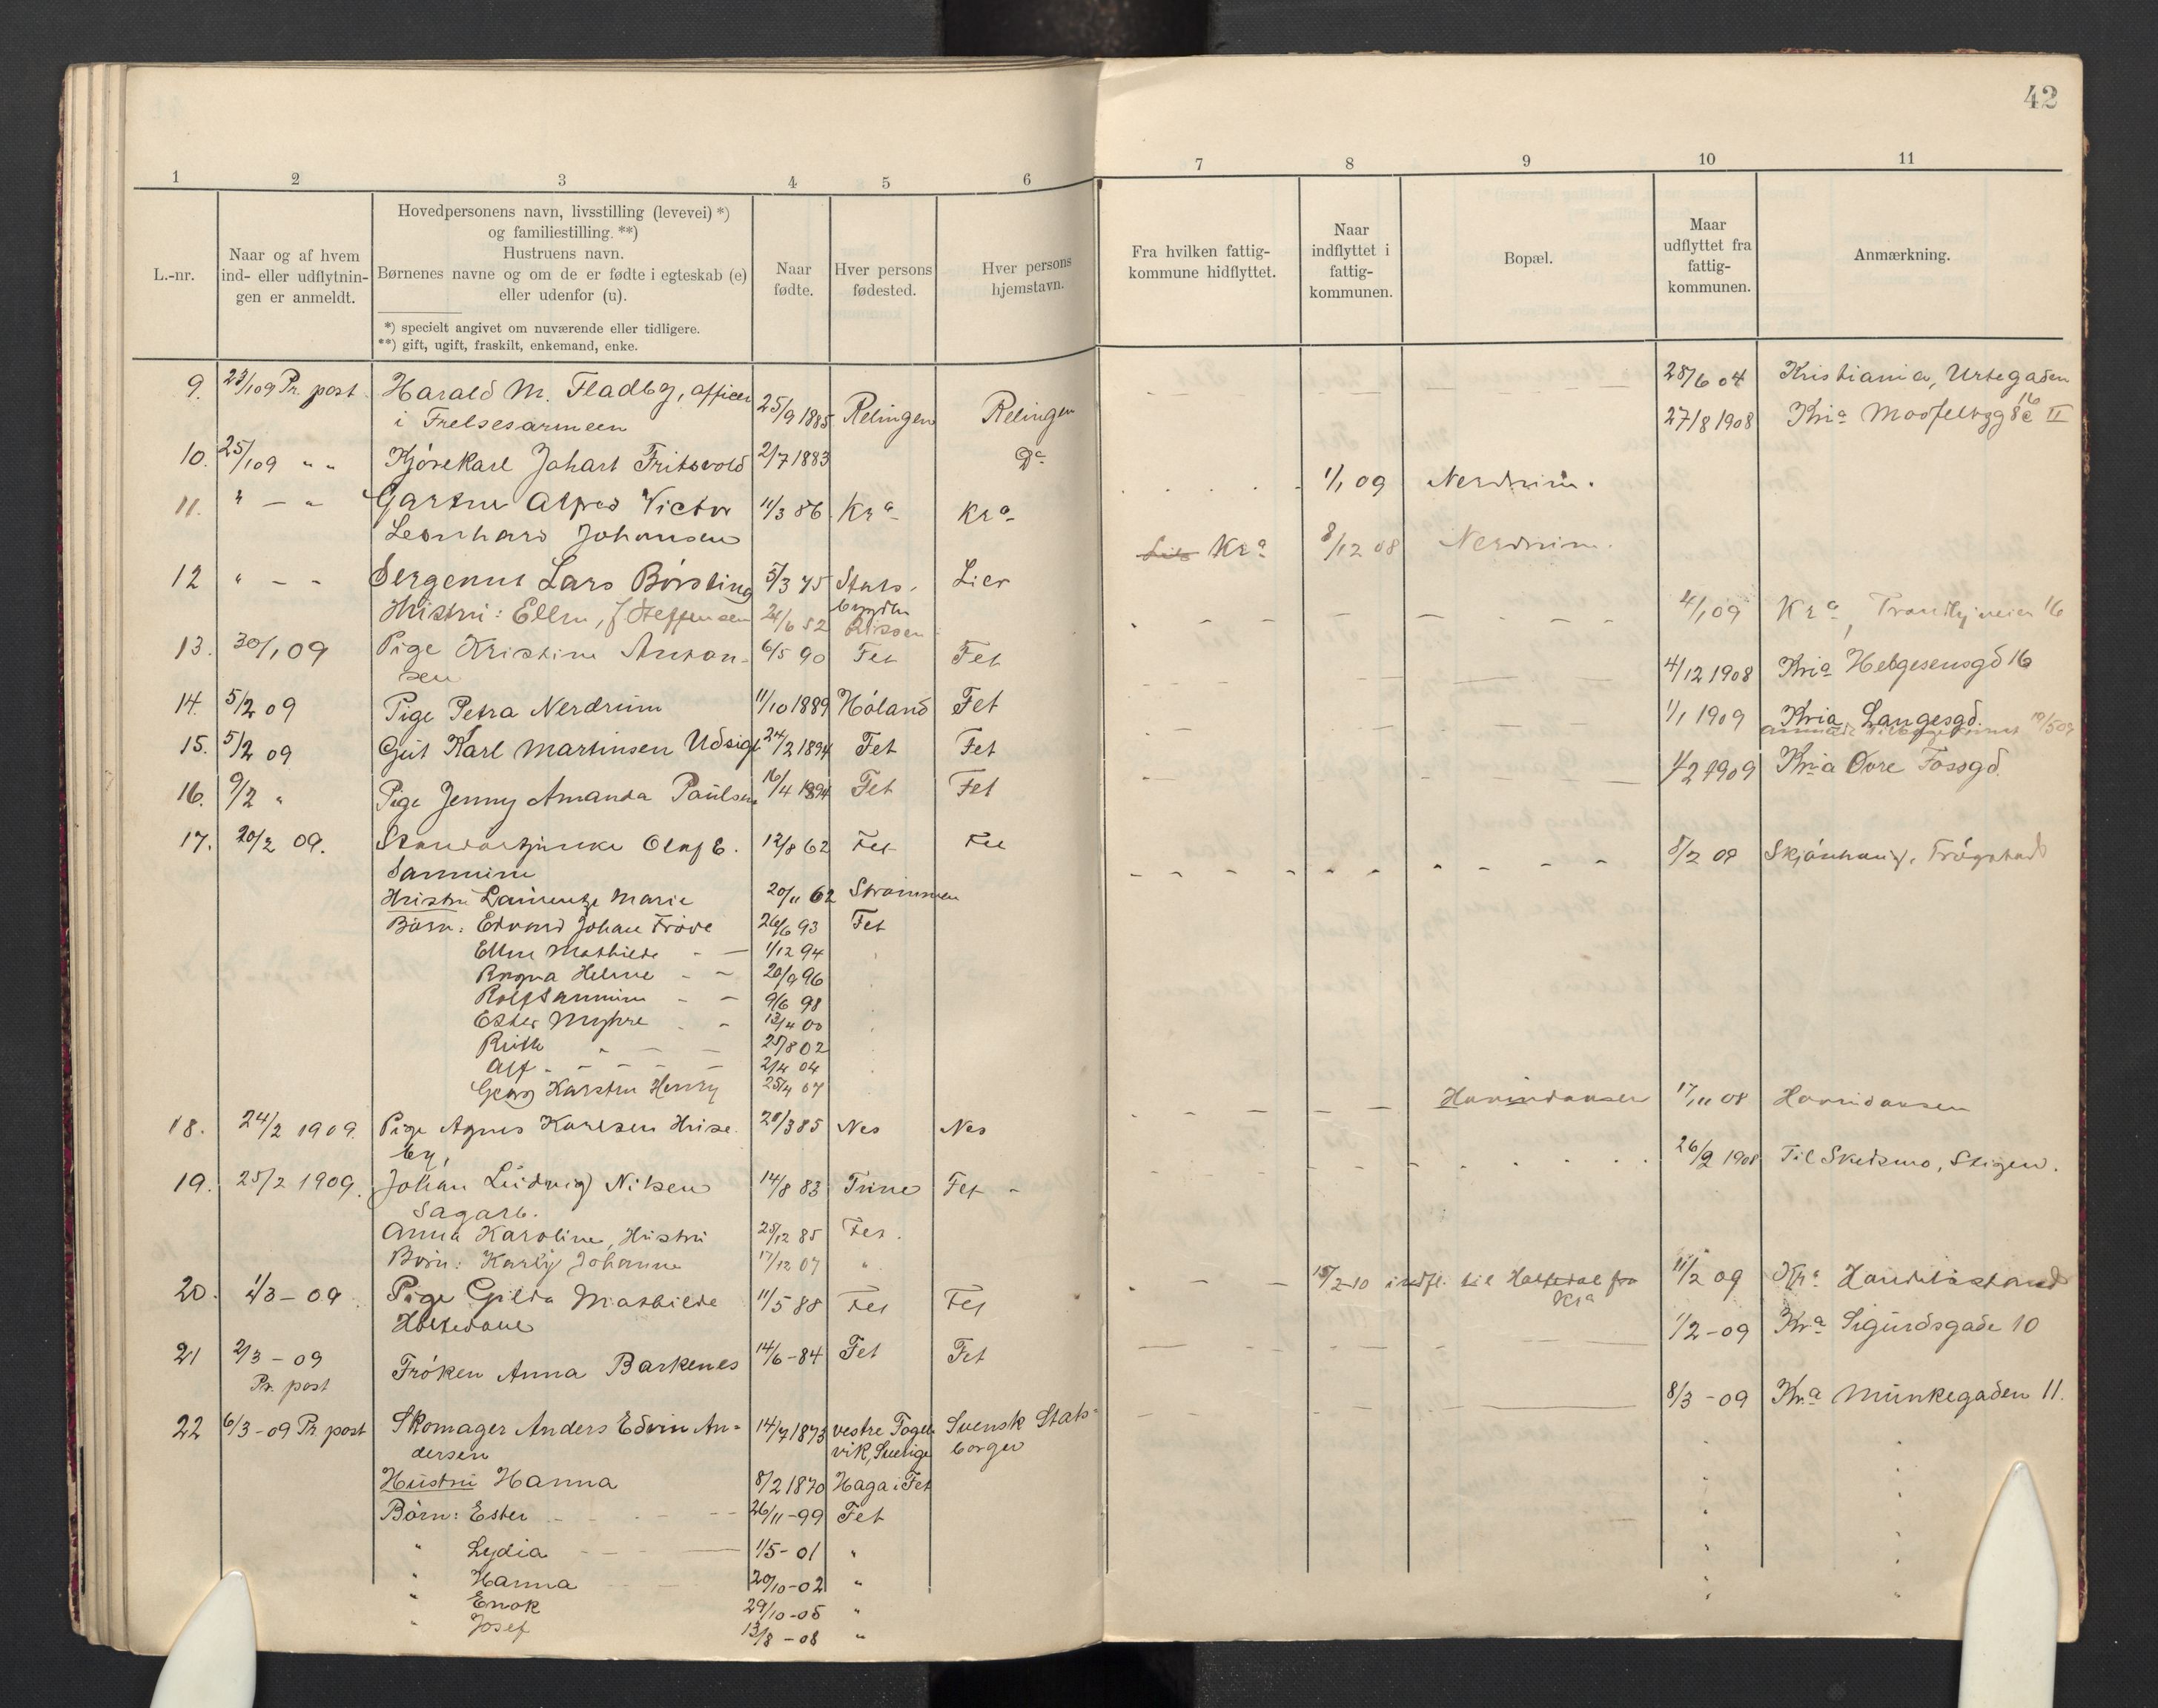 42
1 2 3 4 5 6
L.-nr.
Naar og af hvem
ind- eller udflytnin-
gen er anmeldt.
Hovedpersonens navn, livsstilling (levevei) *)
og familiestilling. **)
Hustruens navn.
Børnenes navne og om de er fødte i egteskab (e)
eller udenfor (u).
*) specielt angivet om nuværende eller tidligere.
**) gift, ugift, fraskilt, enkemand, enke.
Naar
fødte.
Hver persons
fødested.
Hver persons
hjemstavn.
9. 23/1 09 Pr. post Harald M. Fladbg, officer 25/9 1885 Relingen Relingen
i Frelsesarmeen
10. 25/1 09 " " Kjørekarl Johart Fritsvold 2/7 1883 Do
11. " — " Gartner Alfred Victor 11/3 86 Kra Kra
Leonhard Johansen
12 " - - Sergent Lars Børsting 5/3 75 Stads- Lier
bygden
Hustru: Ellen, f Steffensen 24/6 52 Rissen
13. 30/1 09 Pige Kristine Anton- 6/5 90 Fet Fet
sen
14. 5/2 09 Pige Petra Nerdrum 11/10 1889 Höland Fet
15. 5/2 09 Gut Karl Martinsen Udsigt 24/2 1894 Fet Fet
16. 9/2 " Pige Jenny Amanda Paulsen 16/4 1894 Fet Fet
17. 20/2 09. Standartjunker Olaf E. 12/8 62 Fet Fet
Sannum
Hustru Laurentze Marie 20/11 62 Strømmen
Børn: Edvard Johan Frøde 26/6 93 Fet
Ellen Mathilde - — 1/12 94
Ragna Helene - - 20/9 96
Rolf Sannum - - 9/6 98
Ester Myhre - - 13/4 00
Ruth " — — 25/8 02
Alf - - - - - 2/4 04
Georg Karsten Henry 25/4 07
18. 24/2 1909. Pige Agnes Karlsen Huse- 28/3 85 Nes Nes
by,
19. 25/2 1909. Johan Ludvig Nilsen 14/8 83 Trine Fet -
Sagarb.
Anna Karoline, Hustru 25/12 85 Fet.
Børn: Karly Johanne 17/12 07 "
20. 1/3 - 09. Pige Gilda Mathilde 11/5 88 Fet Fet
Halfedalen
21 2/3 - 09 Fröken Anna Barkenes 14/6 - 84 Fet Fet
Pr. post
22 6/3 - 09 Pr post Skomager Anders Edvin An= 14/7 1873 vestre Fogel- Svensk Stats=
dersen vik, Sverige borger
Hustru Hanna 8/2 1870 Haga i Fet
Börn: Ester - - - - 26/11 - 99 Fet
" Lydia - - - — 1/5 - 01 "
" Hanna 20/10 - 02 "
" Enok 29/10 - 05 "
" Josef 13/8 - 08 "
7 8 9 10 11
Fra hvilken fattig-
kommune hidflyttet.
Naar
indflyttet i
fattig-
kommunen.
Bopæl.
Maar
udflyttet fra
fattig-
kommunen.
Anmærkning.
28/6 04 Kristiania, Urtegaden
16
27/8 1908 Kria II
1/1 09 Nerdrum.
Kra 8/12 08 Nerdrum.
4/1 09 Kra, 16
4/12 1908 Kria Helgesensgd 16
1/1 1909 Kria Langesgd.
19/5 09
1/2 1909 Kria Øvre Fossgd.
8/2 09 Skjønhaug, Trøgstad
17/11 08
26/2 1908 Til Skedsmo, Stigen.
15/2 10 indfl. til Halfedal fra
Kra
11/2 09 Kra
1/2 - 09 Kra Sigurdsgade 10
8/3 - 09 Kra Munkegaden 11.